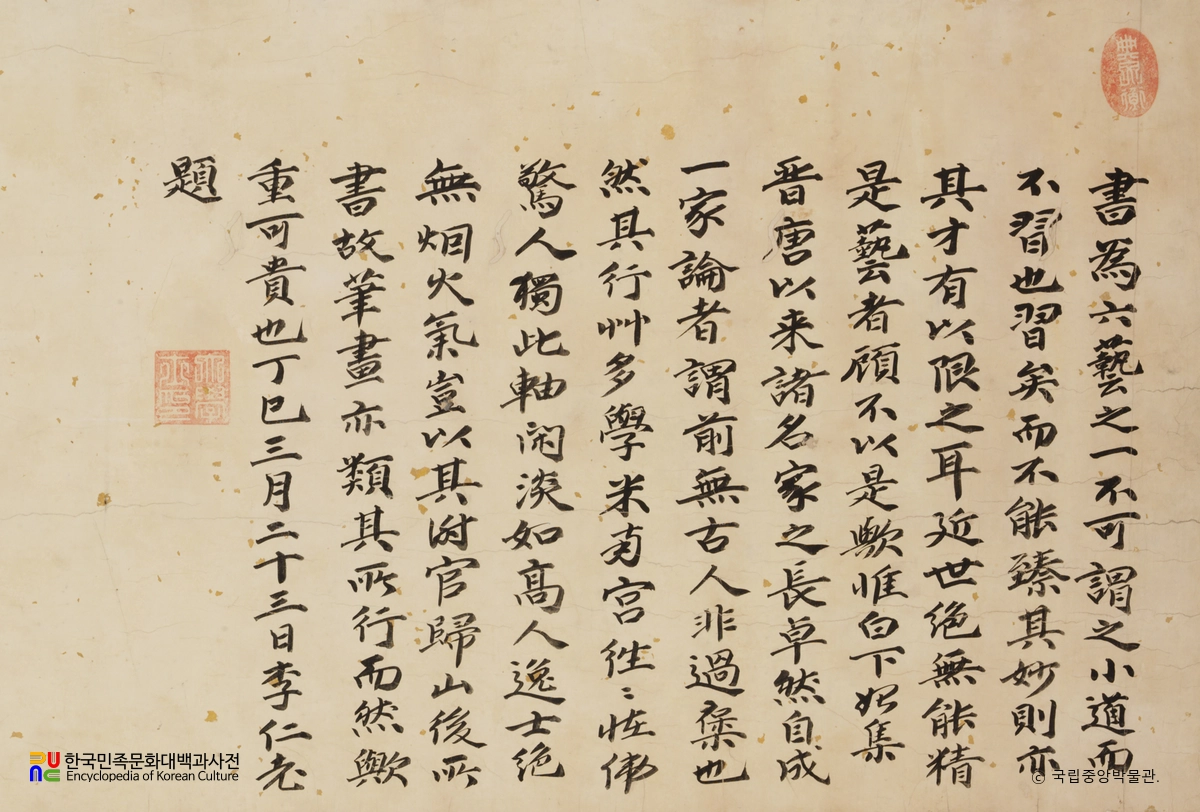 書為六藝之一不可謂之小道而
不習也習矣而不能臻其妙則亦
其才有以限之耳近世絶無能精
是藝者顧不以是歟惟白下始集
晋唐以来諸名家之長卓然自成
一家論者謂前無古人非過褒也
然其行艸多學米南宮徃〻恠偉
驚人獨此軸閑淡如高人逸士絶
無烟火氣豈以其官歸山後所
書故筆畫亦類其所行而然歟
重可貴也丁巳三月二十三日李仁老
題
한국민족문화대백과사전
Encyclopedia of Korean Culture
© 국립중앙박물관.